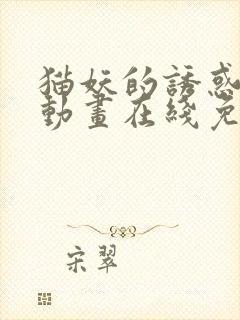 猫妖的誘惑
動畫在綫免
宋翠